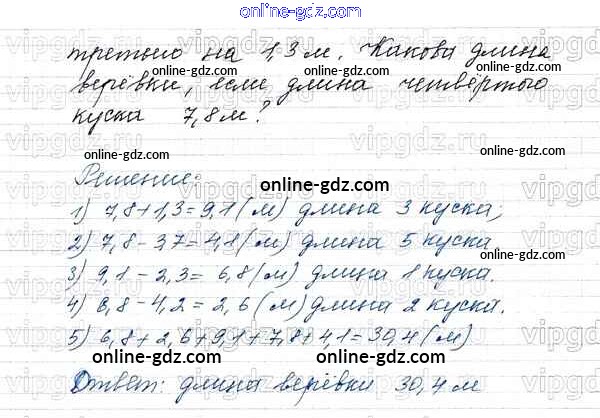 online-gdz.com
третью на 1,3 м. Какова длина
online-gdz.com online-gdz.com
верёвки, если длина четвёртого
куска 7,8 м?
online-gdz.com online-gdz.com
Решение:
online-gdz.com
1) 7,8+1,3=9,1 (м) длина 3 куска;
2) 7,8-3,7=4,1 (м) длина 5 куска
online-gdz.com online-gdz.com
3) 9,1-2,3=6,8 (м) длина 1 куска.
4) 6,8-4,2=2,6 (м) длина 2 куска.
online-gdz.com online-gdz.com
5) 6,8+2,6+9,1+7,8+4,1=30,4 (м)
online-gdz.com online-gdz.com
Ответ: длина верёвки 30,4 м
online-gdz.com